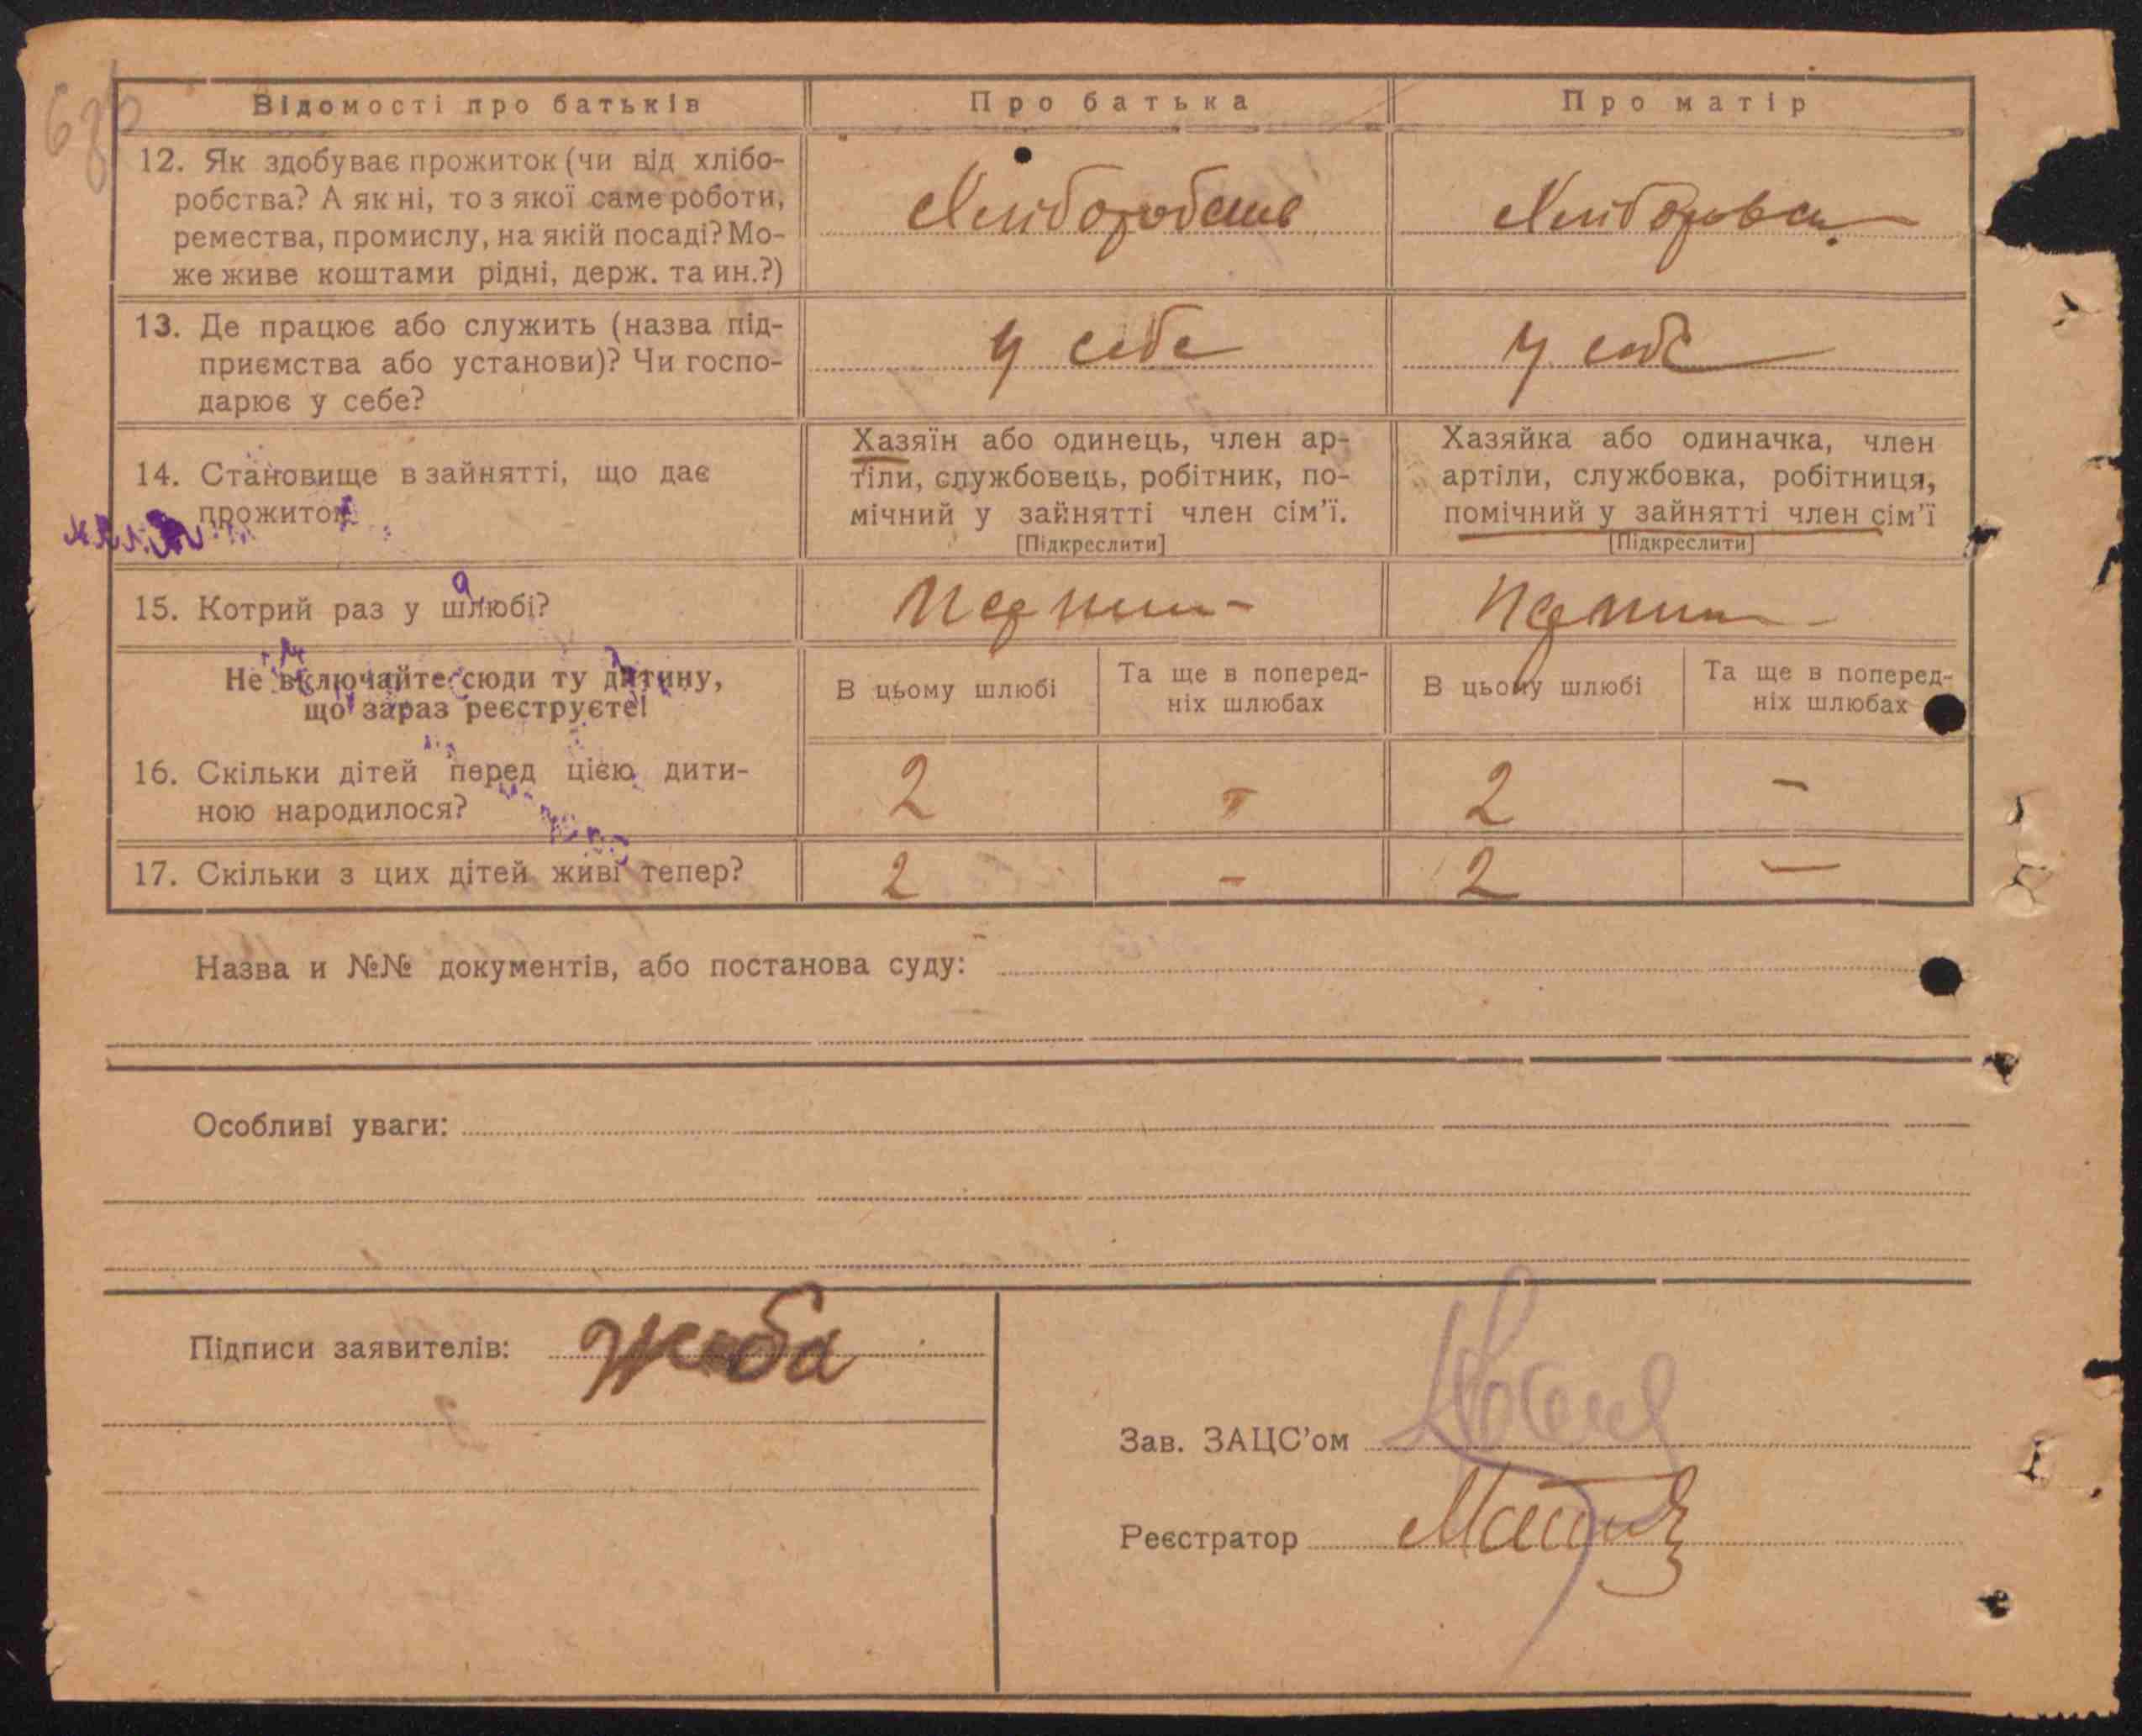 Відомості про батьків
Про батька
Про матір
12. Як здобуває прожиток (чи від хлібо-
робства? А як ні, то з якої саме роботи,
ремества, промислу, на якій посаді? Мо-
же живе коштами рідні, держ. та ин.?)
Хлібороб
Хлібороб
13. Де працює або служить (назва під-
приємства або установи)? Чи госпо-
дарює у себе?
у себе
у себе
14. Становище в зайнятті, що дає
прожиток
Хазяїн або одинець, член ар-
тіли, службовець, робітник, по-
мічний у зайнятті член сім'ї.
[Підкреслити]
Хазяйка або одиначка, член
артіли, службовка, робітниця,
помічний у зайнятті член сім'ї
[Підкреслити]
15. Котрий раз у шлюбі?
Перший
Перший
Не включайте сюди ту дитину,
що зараз реєструєте!
В цьому шлюбі
Та ще в поперед-
ніх шлюбах
В цьому шлюбі
Та ще в поперед-
ніх шлюбах
16. Скільки дітей перед цією дити-
ною народилося?
2 - 2 -
17. Скільки з цих дітей живі тепер?
2 - 2 -
Назва и №№ документів, або постанова суду:
Особливі уваги:
Підписи заявителів:
Зав. ЗАЦС'ом
Реєстратор